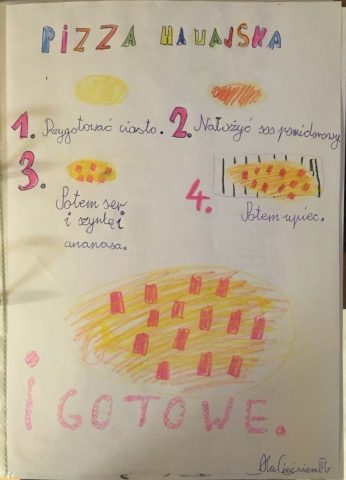 PIZZA HAWAJSKA
1. Przygotować ciasto. 2. Nałożyć sos pomidorowy.
3.
Potem ser
i szynkę i
ananasa.
4.
Potem upiec.
i GOTOWE.